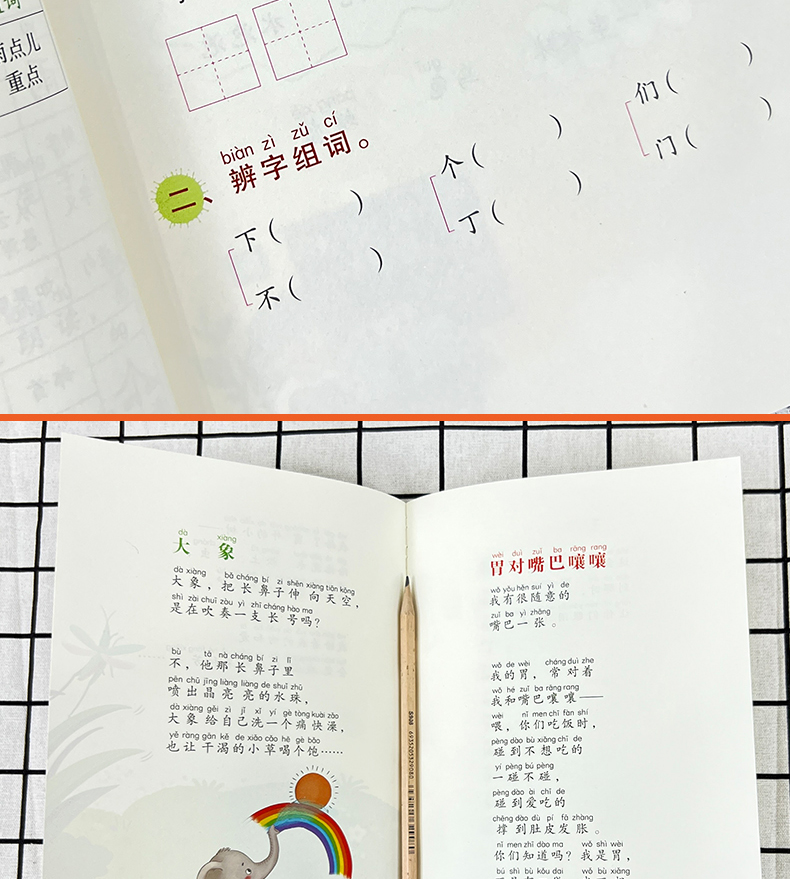 两点儿
重点
biàn zì zǔ cí
二、辨字组词。
下( ) 个( ) 们( )
不( ) 丁( ) 门( )
dà xiàng
大 象
dà xiàng bǎ cháng bí zi shēn xiàng tiān kōng
大象，把长鼻子伸向天空，
shì zài chuī zòu yì zhī cháng hào ma
是在吹奏一支长号吗？
bù tā nà cháng bí zi lǐ
不，他那长鼻子里
pēn chū jīng liàng liàng de shuǐ zhū
喷出晶亮亮的水珠，
dà xiàng gěi zì jǐ xǐ yí gè tòng kuài zǎo
大象给自己洗一个痛快澡，
yě ràng gān kě de xiǎo cǎo hē gè bǎo
也让干渴的小草喝个饱……
wèi duì zuǐ ba rāng rang
胃对嘴巴嚷嚷
wǒ yǒu hěn suí yì de
我有很随意的
zuǐ ba yì zhāng
嘴巴一张。
wǒ de wèi cháng duì zhe
我的胃，常对着
wǒ hé zuǐ ba rāng rang
我和嘴巴嚷嚷——
wèi nǐ men chī fàn shí
喂，你们吃饭时，
pèng dào bù xiǎng chī de
碰到不想吃的
yì pèng bú pèng
一碰不碰，
pèng dào ài chī de
碰到爱吃的
chēng dào dù pí fā zhàng
撑到肚皮发胀。
nǐ men zhī dào ma wǒ shì wèi
你们知道吗？我是胃，
bú shì bù kǒu dai
5508 6935205329080